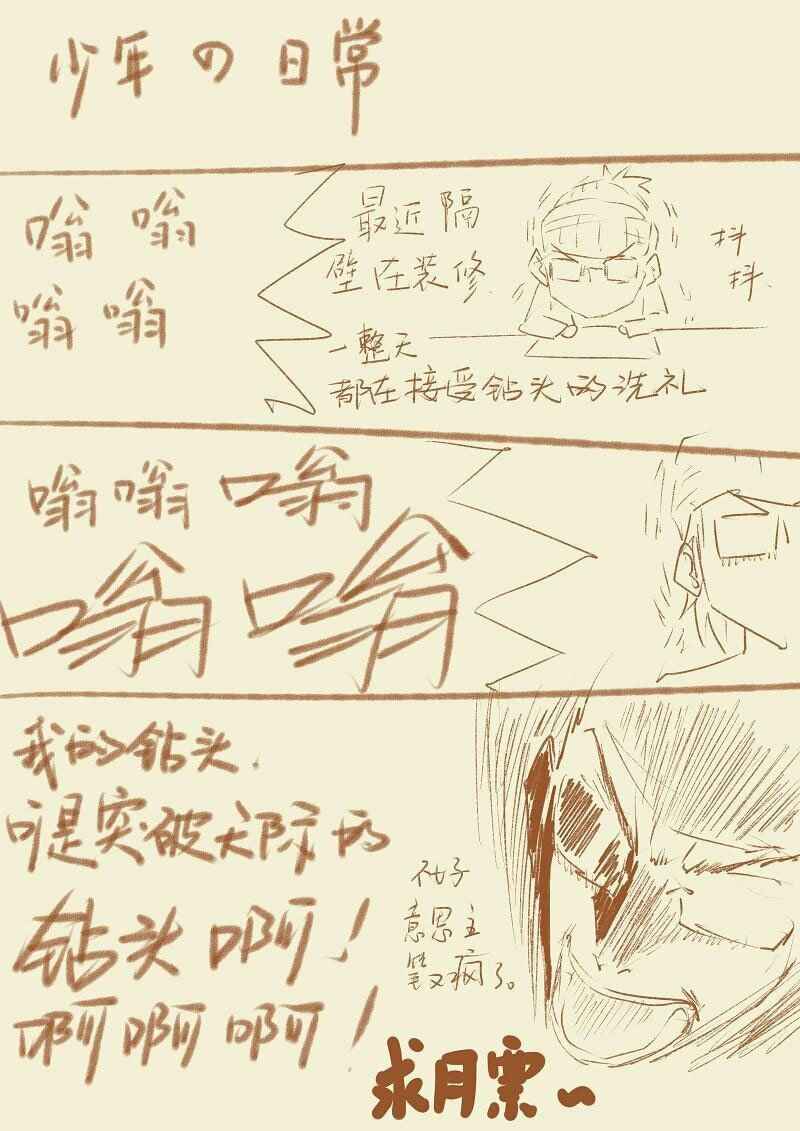 少年の日常
嗡 嗡
嗡 嗡
最近隔
壁在装修.
一整天
都在接受钻头的洗礼
抖
抖.
嗡嗡嗡
嗡嗡
我的钻头.
可是突破天际的
钻头啊！
啊啊啊！
不好
意思主
笔又疯了。
求月票~